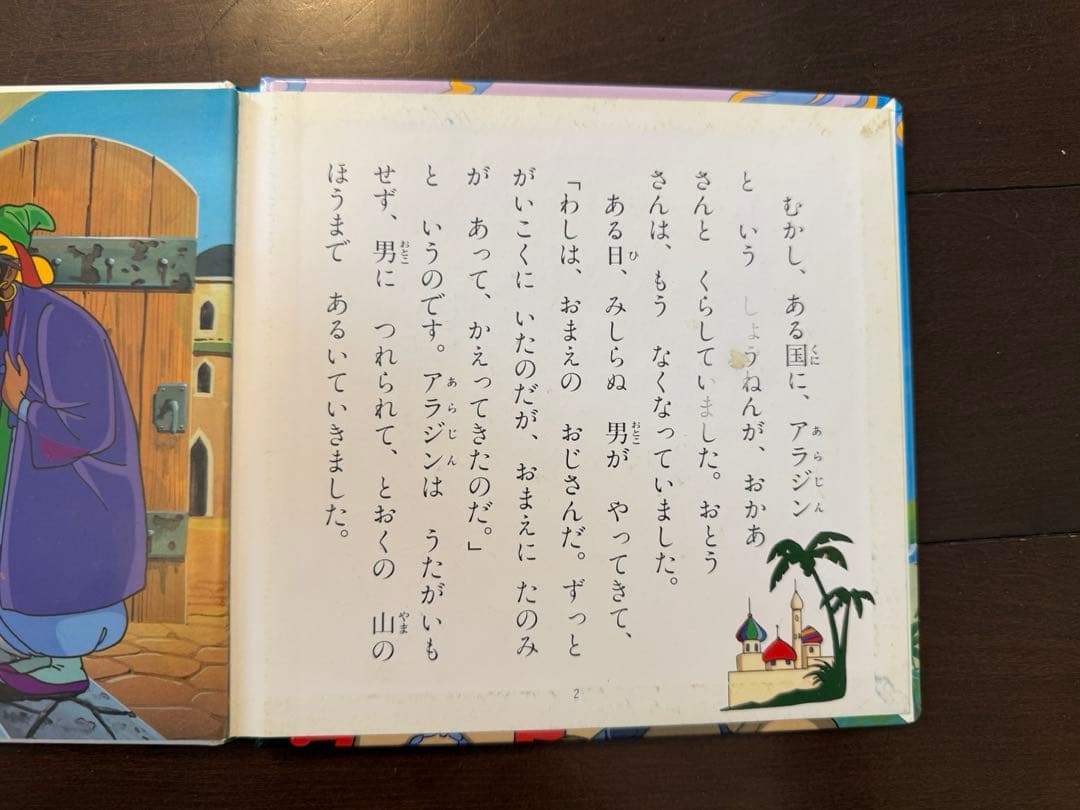 むかし、ある国に、アラジン
と いう しょうねんが、おかあ
さんと くらしていました。おとう
さんは、もう なくなっていました。
ある日、みしらぬ 男が やってきて、
「わしは、おまえの おじさんだ。ずっと
がいこくに いたのだが、おまえに たのみ
が あって、かえってきたのだ。」
と いうのです。アラジンは うたがいも
せず、男に つれられて、とおくの 山の
ほうまで あるいていきました。
2